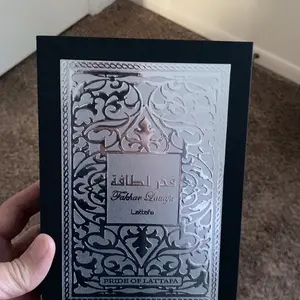 فخر لطافة
Fakhar Lattafa
Lattafa
PRIDE OF LATTAFA